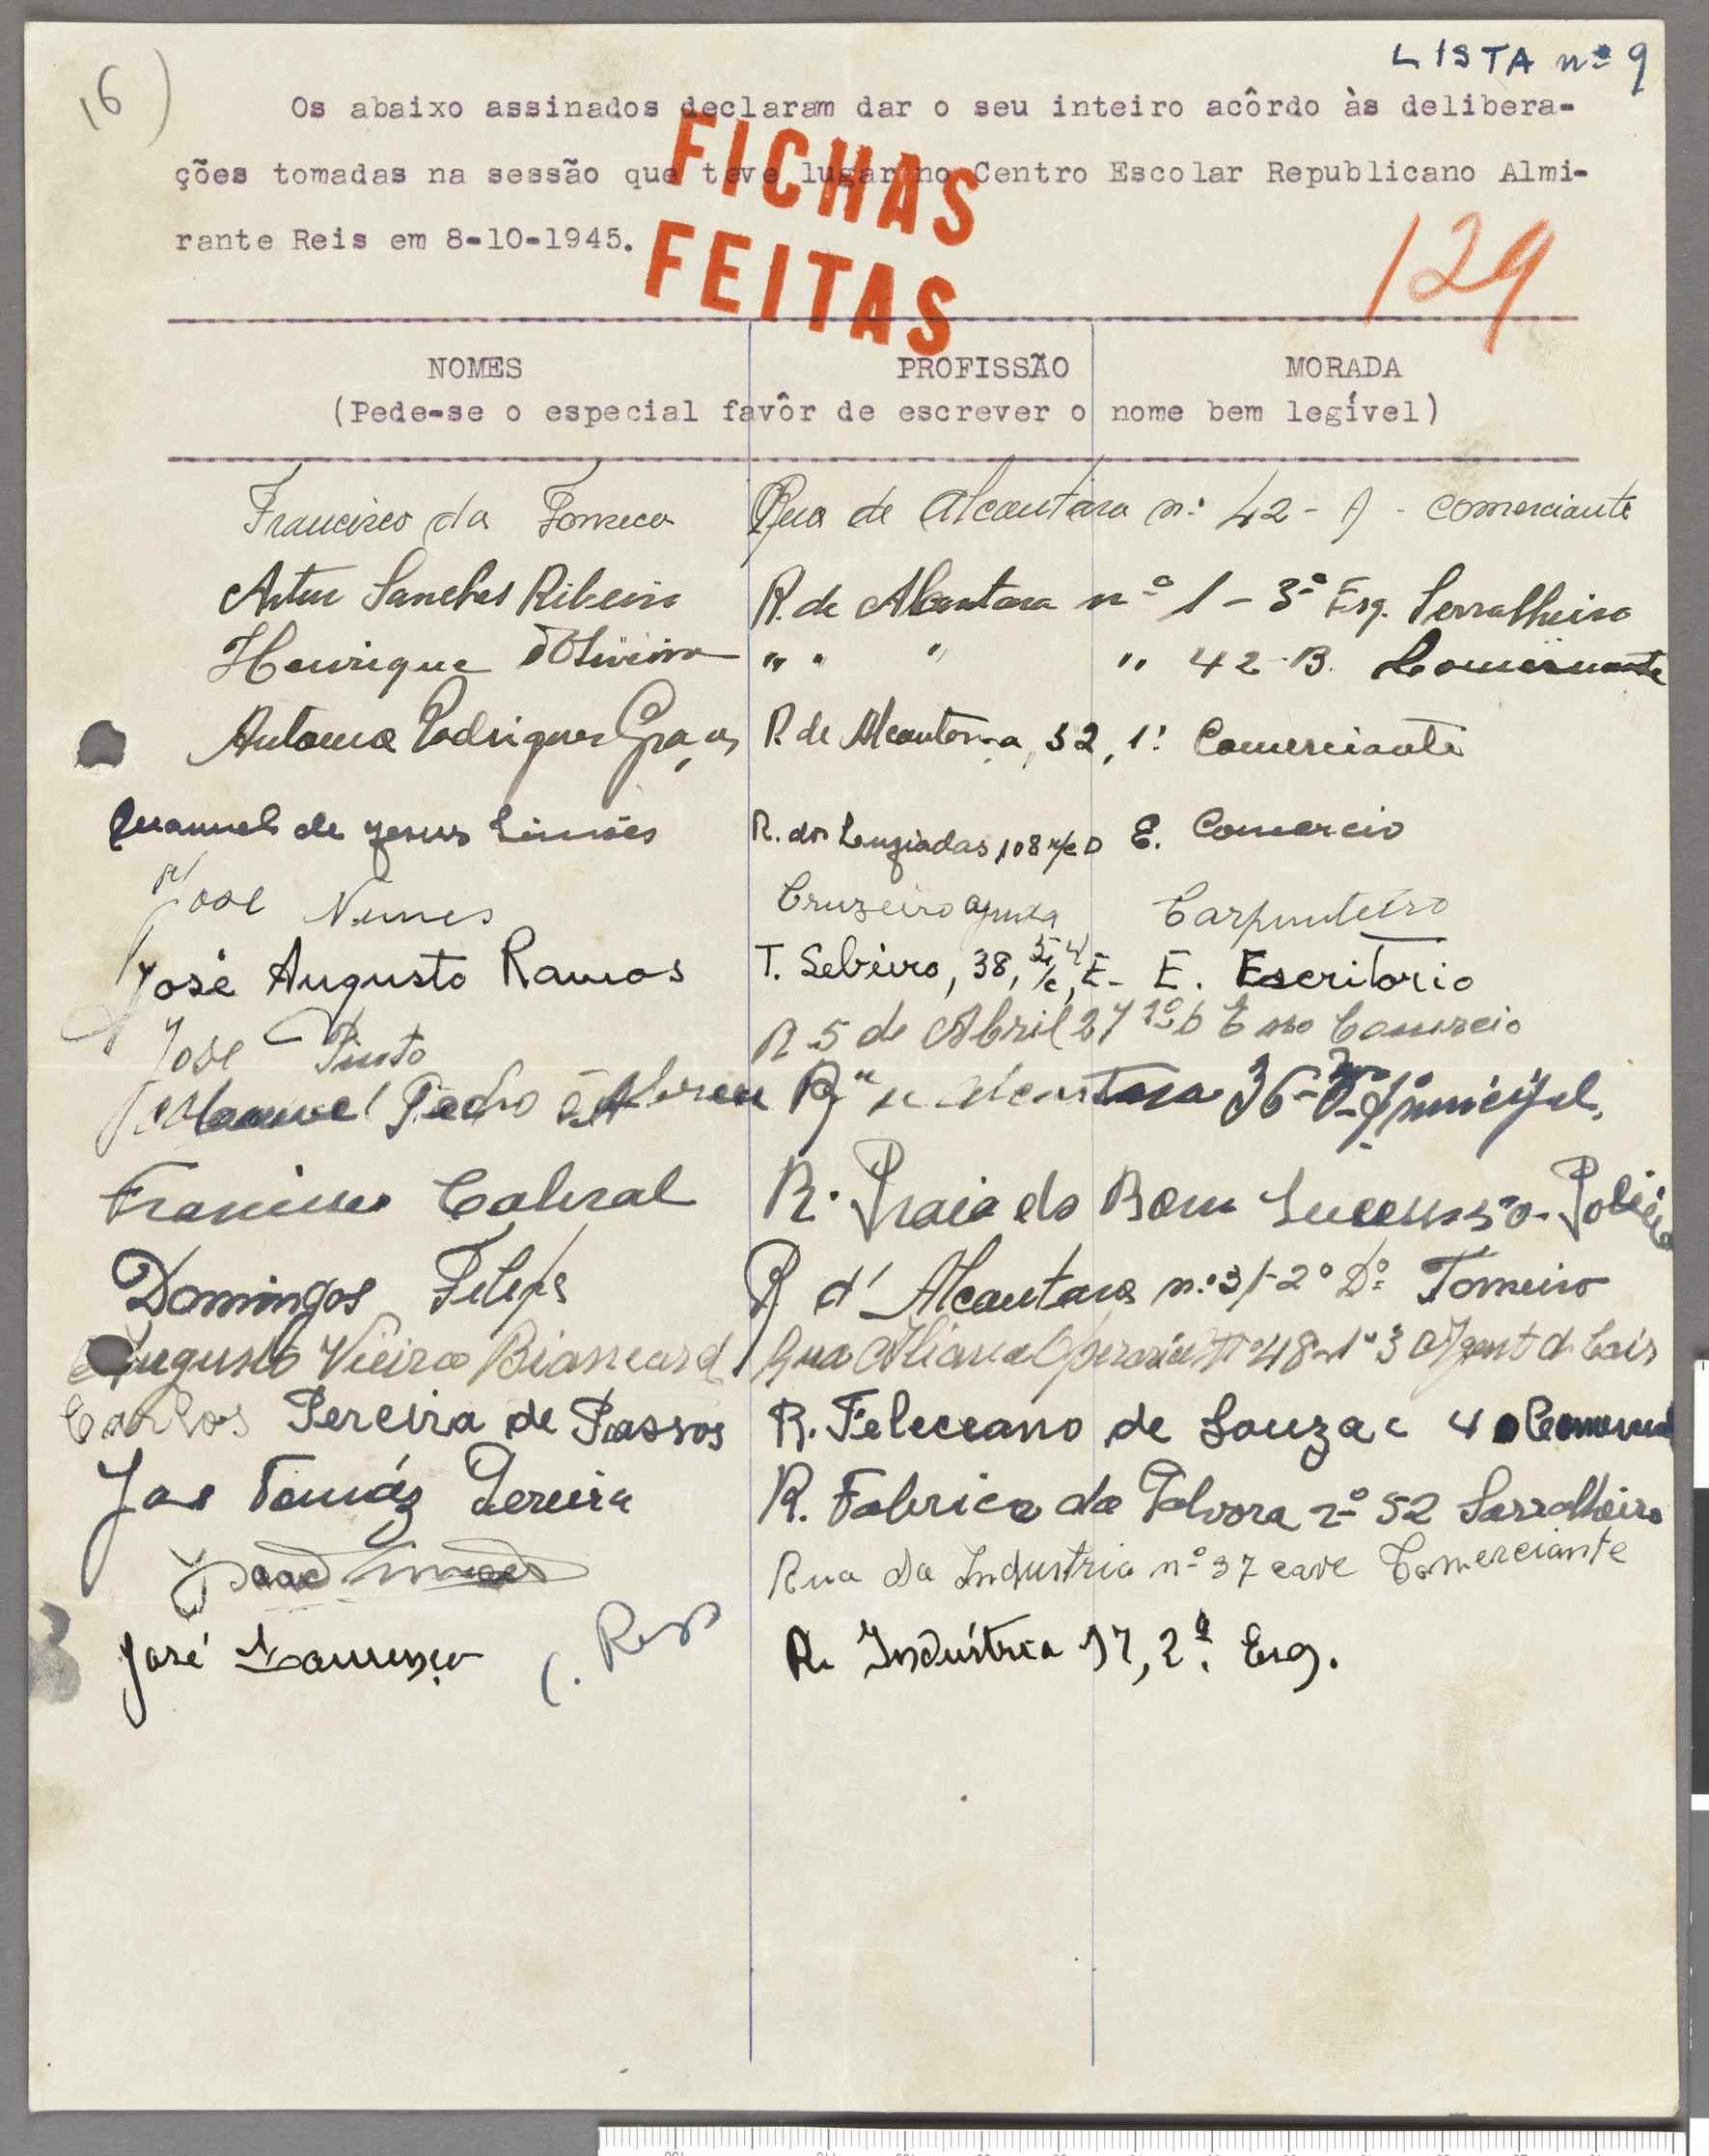 LISTA nº 9
16)
Os abaixo assinados declaram dar o seu inteiro acôrdo às delibera-
ções tomadas na sessão que teve lugar no Centro Escolar Republicano Almi-
rante Reis em 8-10-1945.
FICHAS
FEITAS
129
NOMES PROFISSÃO MORADA
(Pede-se o especial favôr de escrever o nome bem legível)
Francisco da Fonseca Rua de Alcantara n.º 42-A - comerciante
Artur Sanches Ribeiro R. de Alcantara nº 1-3º Esq. Serralheiro
Henrique d'Oliveira " " " " 42-B. Comerciante
Antonio Rodrigues Graça R. de Alcantara, 32, 1º Comerciante
Manuel de Jesus Simões R. dos Luziadas 108 r/c D E. Comercio
José Nunes Cruzeiro Ajuda Carpinteiro
José Augusto Ramos T. Sebeiro, 38, r/c, E- E. Escritorio
José Pinto R 5 de Abril 27 E no Comercio
Manuel Pedro Abreu Alcantara 36
Francisco Cabral R. Praia do Bom Sucesso - Policia
Domingos Filipe R d' Alcantara n.º 31-2º Dº Torneiro
Augusto Vieira Rua Aliança Operária nº 48
Carlos Pereira de Passos R. Feleceano de Souza 4
José Tomáz Pereira R. Fabrica da Polvora nº 52 Serralheiro
Rua da Industria nº 37 cave Comerciante
José Lourenço R. Indústria 17, 2º. Esq.